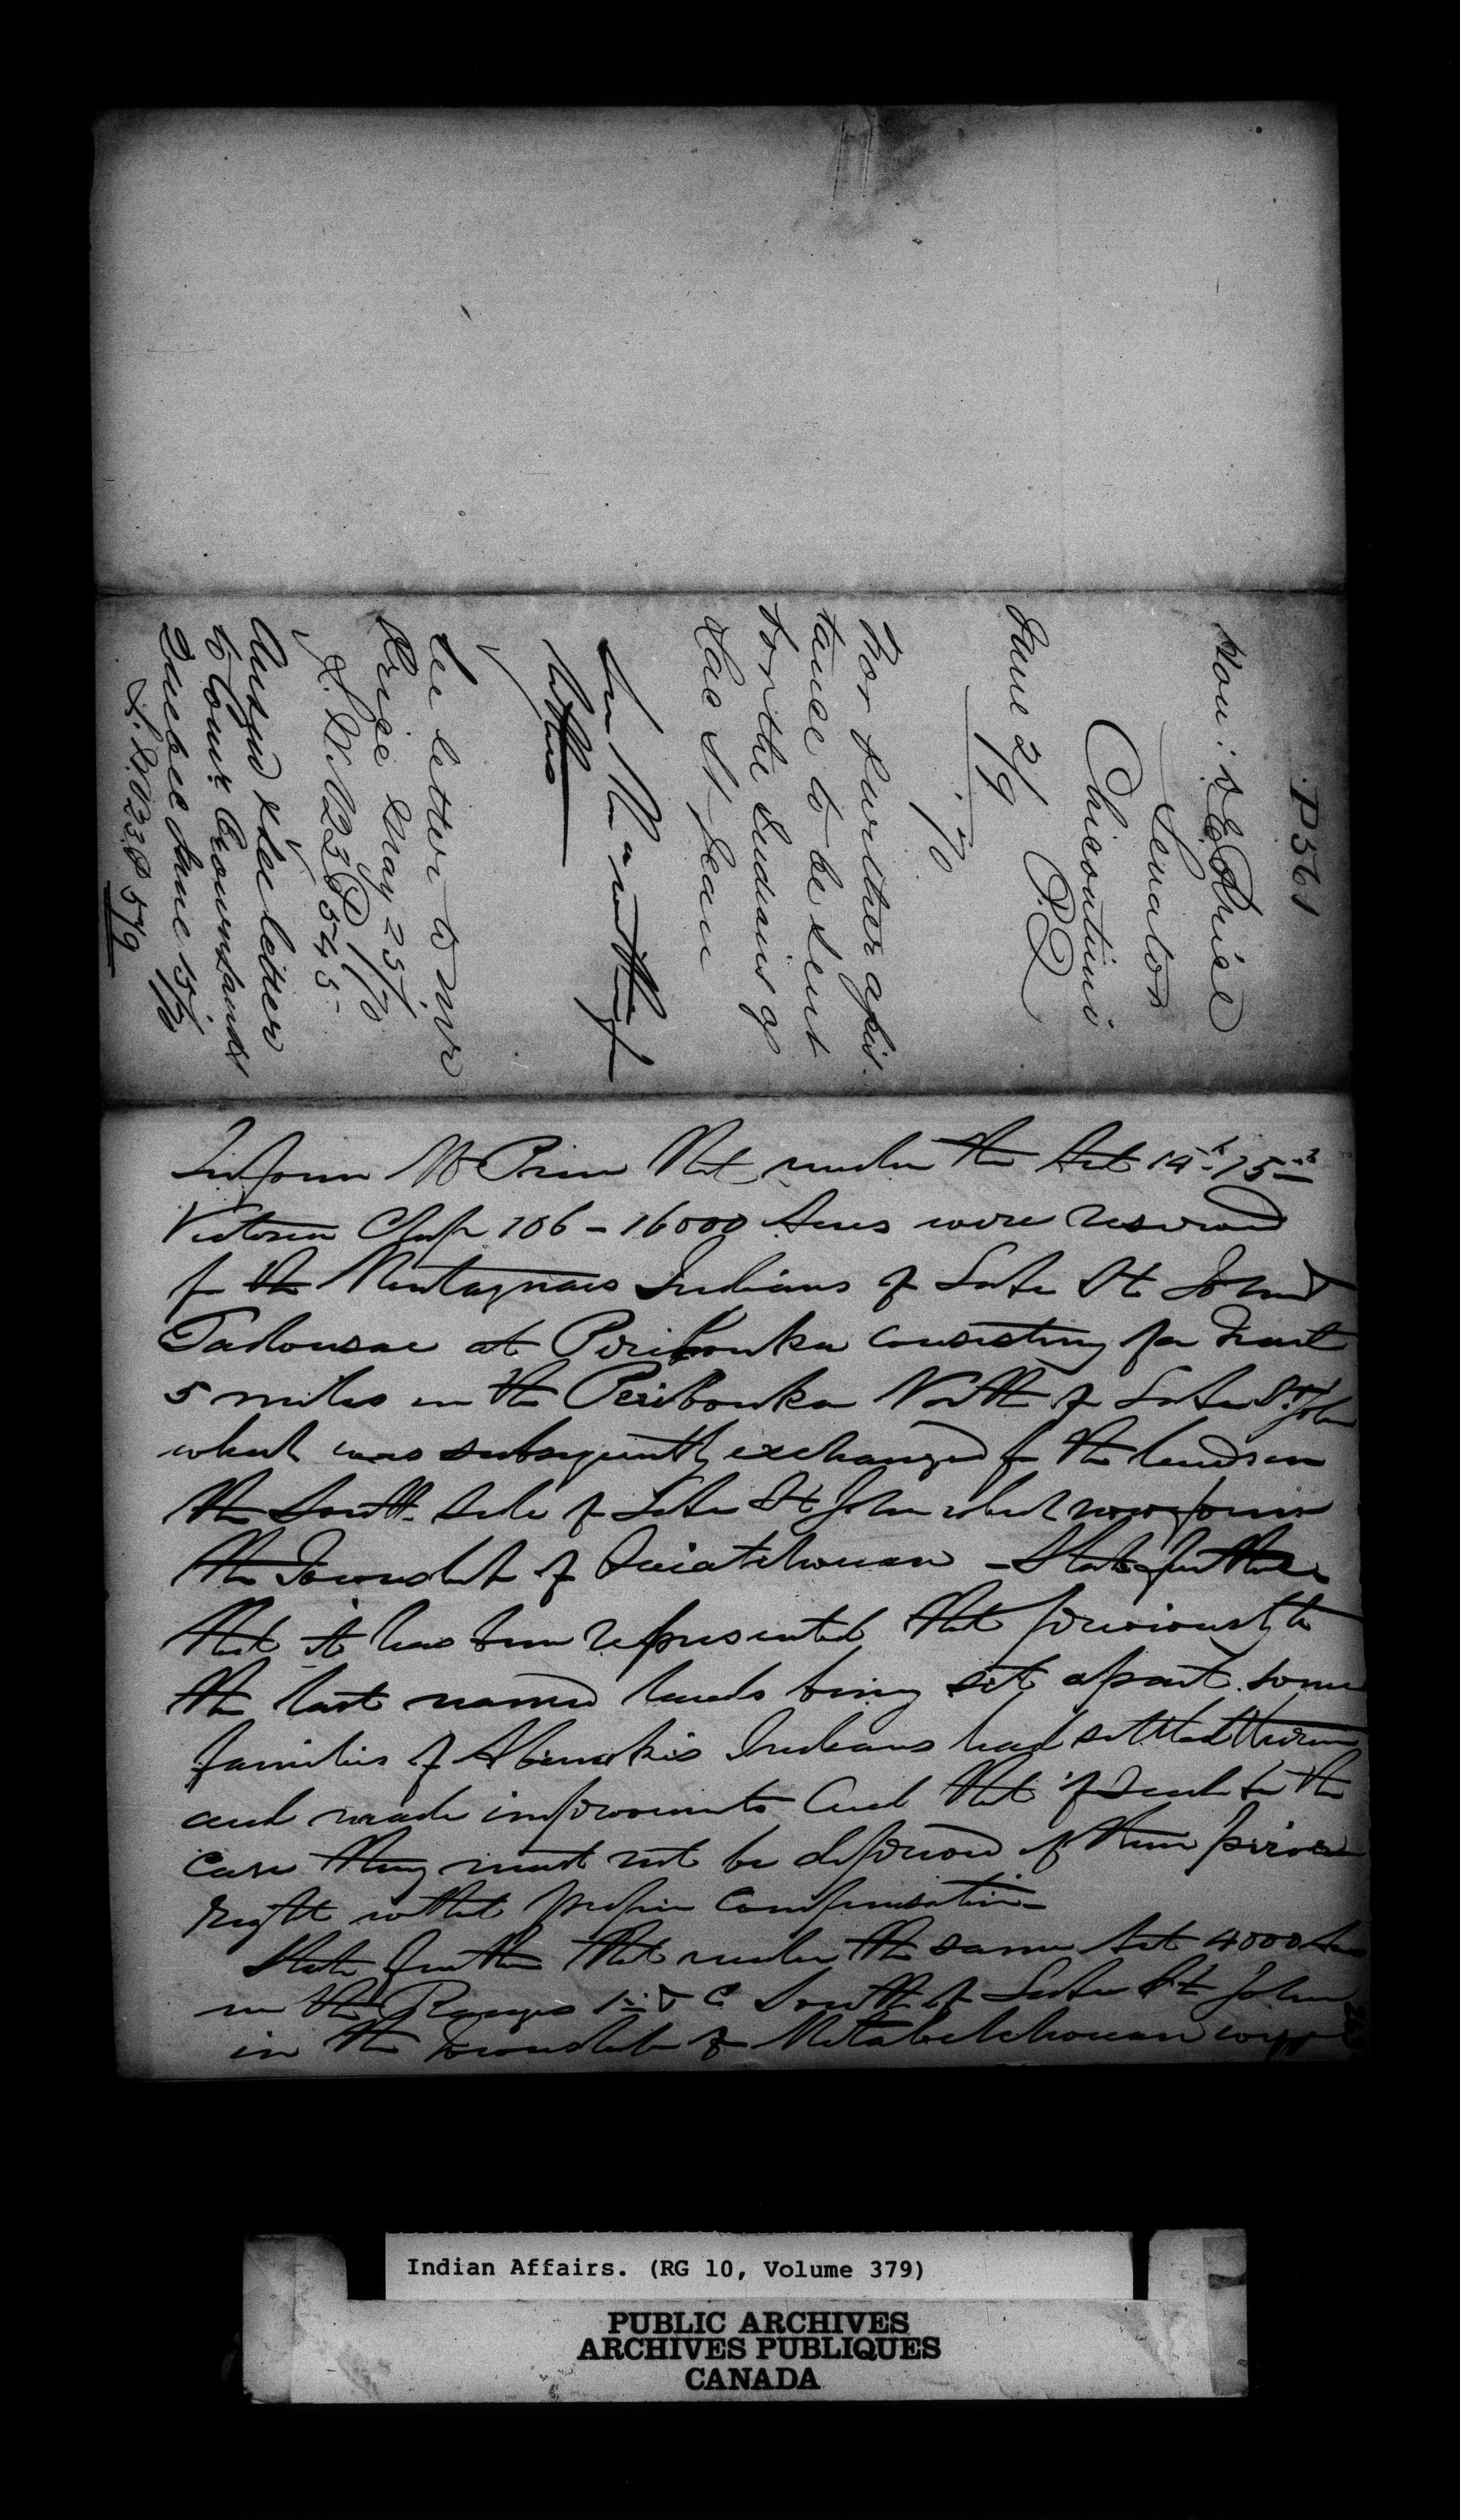 P561
Hon: D. E. Price
Senator
Chicoutimi
P.Q
June 2/9
/70
For further assis-
tance to be sent
for the Indians of
Lac St Jean
See letter to Mr
Price May 25/70
L. B. N 23 P 545
Answd & see letter
to Comr Crownlands
Quebec June 15/70
L. B. N 23. P 579
Inform Mr Price that under the Act 14th 15th
Victoria Chap 106 - 16000 Acres were reserved
for the Montagnais Indians of Lake St John &
Tadousac at Peribonka consisting of a tract
5 miles on the Peribonka North of Lake St John
which was subsequently exchanged for the lands on
the South Side of Lake St John which now form
the Township of Ouiatchouan - State further
that it has been represented that previously to
the last named lands being set apart some
families of Abenakis Indians had settled thereon
and made improvements and that if such be the
case they must not be deprived of their prior
right without proper compensation -
State further that under the same Act 4000 Acres
in the Ranges 1st & C South of Lake St John
in the Township of Metabetchouan
Indian Affairs. (RG 10, Volume 379)
PUBLIC ARCHIVES
ARCHIVES PUBLIQUES
CANADA